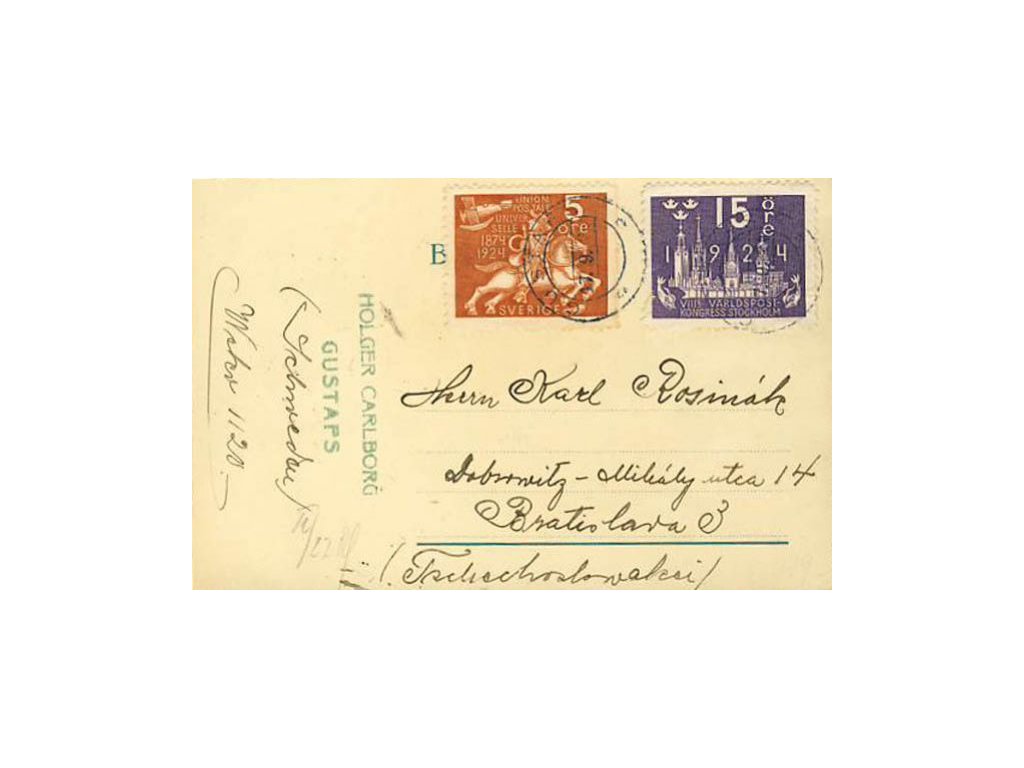 UNION
POSTALE
UNIVER
SELLE
1874
1924
5
öre
SVERIGE
15
öre
1924
VIII: VÄRLDSPOST-
KONGRESS STOCKHOLM
B
HOLGER CARLBORG
GUSTAFS
(Schweden)
1120.
Herrn Karl Rosinák
Dobrowitz-Mihály utca 14
Bratislava 3
(Tschechoslowakei)